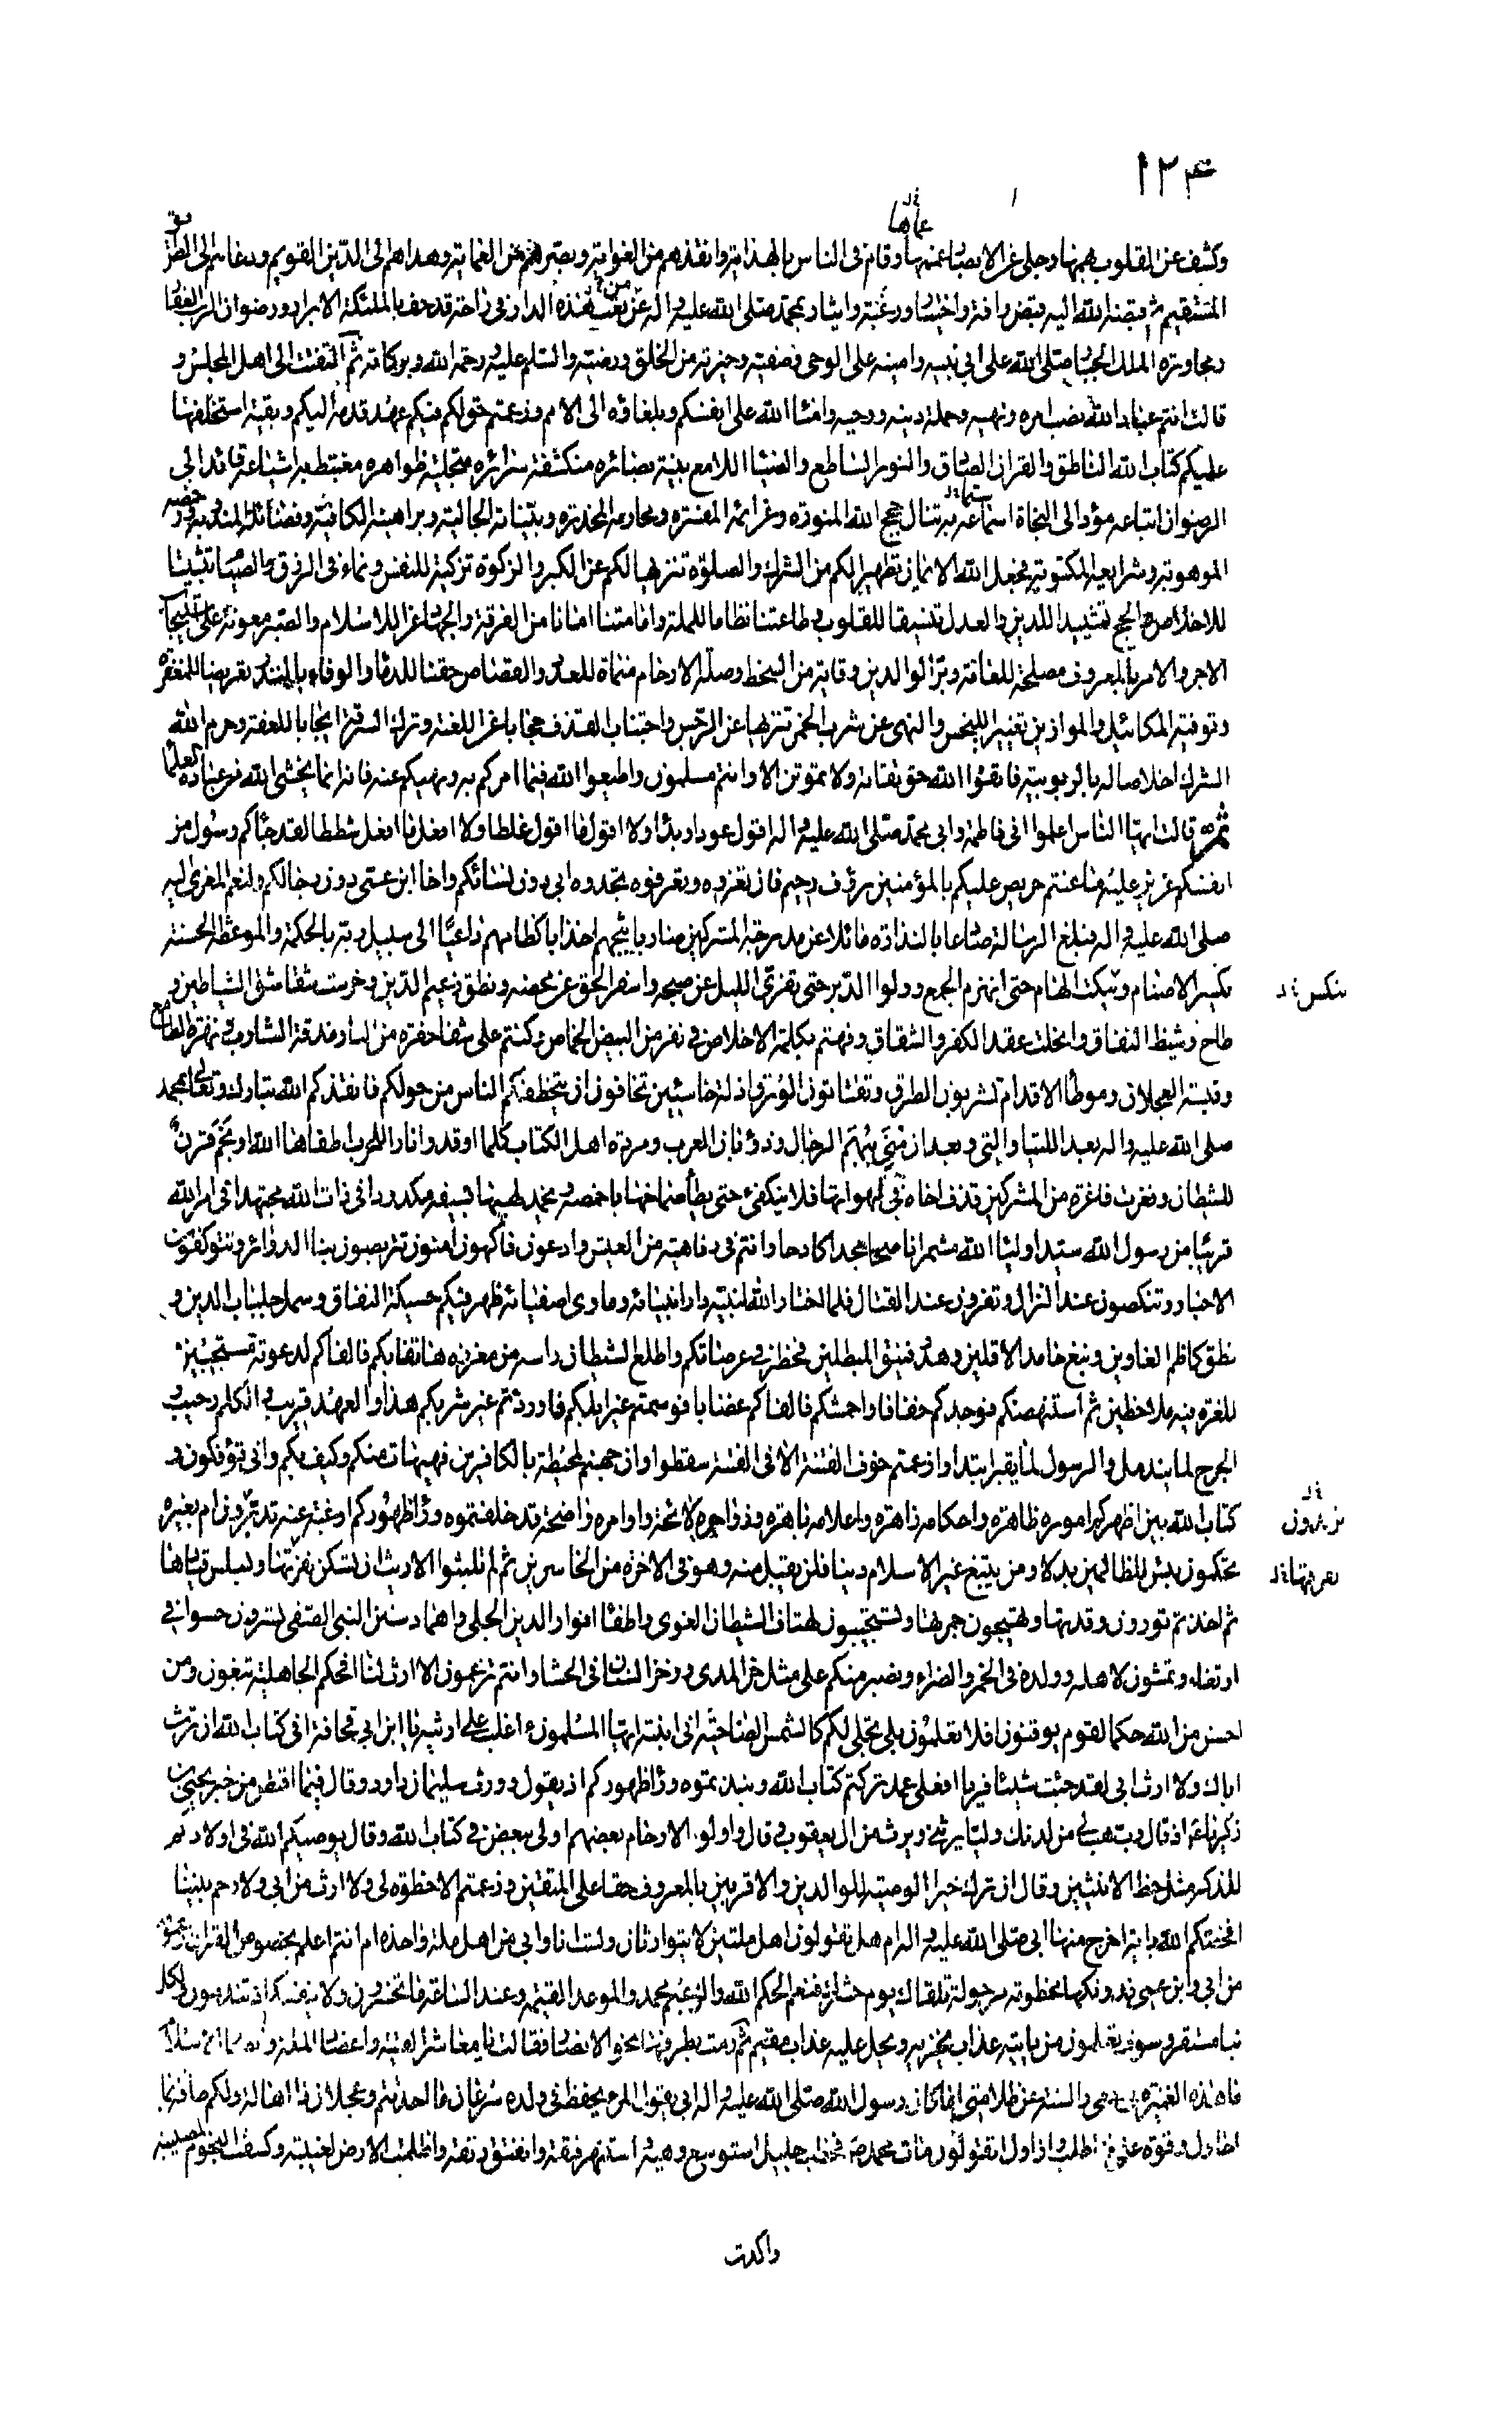 ١٢۴
عماها
وكشف عن القلوب بهمها وجلى عن الابصار غمتها وقام فى الناس بالهداية وانقذهم من الغواية وبصرهم من العماية وهداهم الى الدين القويم ودعاهم الى الطريق
المستقيم ثم قبضه الله اليه قبض رافة واختيار ورغبة وايثار بمحمد صلى الله عليه واله عن تعب هذه الدار فى راحة قد حف بالملئكة الابرار ورضوان الرب الغفار
ومجاورة الملك الجبار صلى الله على ابى نبيه وامينه على الوحى وصفيه وخيرته من الخلق ورضيه والسلم عليه ورحمة الله وبركاته ثم التفتت الى اهل المجلس و
قالت انتم عباد الله نصب امره ونهيه وحملة دينه ووحيه وامناء الله على انفسكم وبلغاؤه الى الامم وزعمتم حق لكم فيكم عهد قدمه اليكم وبقية استخلفها
عليكم كتاب الله الناطق والقران الصادق والنور الساطع والضياء اللامع بينة بصائره منكشفة سرائره متجلية ظواهره مغتبط به اشياعه قائد الى
الرضوان اتباعه مؤد الى النجاة استماعه به تنال حجج الله المنورة وعزائمه المفسرة ومحارمه المحذرة وبيناته الجالية وبراهينه الكافية وفضائله المندوبة ورخصه
الموهوبة وشرايعه المكتوبة فجعل الله الايمان تطهيرا لكم من الشرك والصلوة تنزيها لكم عن الكبر والزكوة تزكية للنفس ونماء فى الرزق والصيام تثبيتا
للاخلاص والحج تشييدا للدين والعدل تنسيقا للقلوب وطاعتنا نظاما للملة وامامتنا امانا من الفرقة والجهاد عزا للاسلام والصبر معونة على استيجاب
الاجر والامر بالمعروف مصلحة للعامة وبر الوالدين وقاية من السخط وصلة الارحام منماة للعدد والقصاص حقنا للدماء والوفاء بالنذر تعريضا للمغفرة
وتوفية المكائيل والموازين تغييرا للبخس والنهى عن شرب الخمر تنزيها عن الرجس واجتناب القذف حجابا عن اللعنة وترك السرقة ايجابا للعفة وحرم الله
الشرك اخلاصا له بالربوبية فاتقوا الله حق تقاته ولا تموتن الا وانتم مسلمون واطيعوا الله فيما امركم به ونهيكم عنه فانه انما يخشى الله من عباده العلماء
ثم قالت ايها الناس اعلموا انى فاطمة وابى محمد صلى الله عليه واله اقول عودا وبدءا ولا اقول ما اقول غلطا ولا افعل ما افعل شططا لقد جاءكم رسول من
انفسكم عزيز عليه ما عنتم حريص عليكم بالمؤمنين رؤف رحيم فان تعزوه وتعرفوه تجدوه ابى دون نسائكم واخا ابن عمى دون رجالكم ولنعم المعزى اليه
صلى الله عليه واله فبلغ الرسالة صادعا بالنذارة مائلا عن مدرجة المشركين ضاربا ثبجهم اخذا باكظامهم داعيا الى سبيل ربه بالحكمة والموعظة الحسنة
يكسر الاصنام وينكت الهام حتى انهزم الجمع وولوا الدبر حتى تفرى الليل عن صبحه واسفر الحق عن محضه ونطق زعيم الدين وخرست شقاشق الشياطين و
ينكس خ‌ل
طاح وشيظ النفاق وانحلت عقد الكفر والشقاق وفهتم بكلمة الاخلاص فى نفر من البيض الخماص وكنتم على شفا حفرة من النار مذقة الشارب ونهزة الطامع
وقبسة العجلان وموطأ الاقدام تشربون الطرق وتقتاتون الورق اذلة خاسئين تخافون ان يتخطفكم الناس من حولكم فانقذكم الله تبارك وتعالى بمحمد
صلى الله عليه واله بعد اللتيا والتى وبعد ان منى ببهم الرجال وذؤبان العرب ومردة اهل الكتاب كلما اوقدوا نارا للحرب اطفاها الله او نجم قرن
للشيطان وفغرت فاغرة من المشركين قذف اخاه فى لهواتها فلا ينكفئ حتى يطأ صماخها باخمصه ويخمد لهبها بسيفه مكدودا فى ذات الله مجتهدا فى امر الله
قريبا من رسول الله سيد اولياء الله مشمرا ناصحا مجدا كادحا وانتم فى رفاهية من العيش وادعون فاكهون امنون تتربصون بنا الدوائر وتتوكفون
الاخبار وتنكصون عند النزال وتفرون عند القتال فلما اختار الله لنبيه دار انبيائه وماوى اصفيائه ظهر فيكم حسيكة النفاق وسمل جلباب الدين و
نطق كاظم الغاوين ونبغ خامل الاقلين وهدر فنيق المبطلين فخطر فى عرصاتكم واطلع الشيطان راسه من مغرزه هاتفا بكم فالفاكم لدعوته مستجيبين
للغرة فيه ملاحظين ثم استنهضكم فوجدكم خفافا واحمشكم فالفاكم غضابا فوسمتم غير ابلكم واوردتم غير شربكم هذا والعهد قريب والكلم رحيب و
الجرح لما يندمل والرسول لما يقبر ابتدارا زعمتم خوف الفتنة الا فى الفتنة سقطوا وان جهنم لمحيطة بالكافرين فهيهات منكم وكيف بكم وانى تؤفكون و
كتاب الله بين اظهركم اموره ظاهرة واحكامه زاهرة واعلامه باهرة وزواجره لائحة واوامره واضحة قد خلفتموه وراء ظهوركم ارغبة عنه تدبرون ام بغيره
خ‌ل
تريدون
تحكمون بئس للظالمين بدلا ومن يبتغ غير الاسلام دينا فلن يقبل منه وهو فى الاخرة من الخاسرين ثم لم تلبثوا الا ريث ان تسكن نفرتها ويسلس قيادها
ثم اخذتم تورون وقدتها وتهيجون جمرتها وتستجيبون لهتاف الشيطان الغوى واطفاء انوار الدين الجلى واهماد سنن النبى الصفى تسرون حسوا فى
ارتغاء وتمشون لاهله وولده فى الخمر والضراء ونصبر منكم على مثل حز المدى ووخز السنان فى الحشا وانتم تزعمون الا ارث لنا افحكم الجاهلية تبغون ومن
احسن من الله حكما لقوم يوقنون افلا تعلمون بلى تجلى لكم كالشمس الضاحية انى ابنته ايها المسلمون ءاغلب على ارثيه يا ابن ابى قحافة افى كتاب الله ان ترث
اباك ولا ارث ابى لقد جئت شيئا فريا افعلى عمد تركتم كتاب الله ونبذتموه وراء ظهوركم اذ يقول وورث سليمان داود وقال فيما اقتص من خبر يحيى بن
زكريا ع اذ قال رب هب لى من لدنك وليا يرثنى ويرث من ال يعقوب وقال واولو الارحام بعضهم اولى ببعض فى كتاب الله وقال يوصيكم الله فى اولادكم
للذكر مثل حظ الانثيين وقال ان ترك خيرا الوصية للوالدين والاقربين بالمعروف حقا على المتقين وزعمتم الا حظوة لى ولا ارث من ابى ولا رحم بيننا
افخصكم الله باية اخرج منها ابى صلى الله عليه واله ام هل تقولون اهل ملتين لا يتوارثان ولست انا وابى من اهل ملة واحدة ام انتم اعلم بخصوص القران وعمومه
من ابى وابن عمى فدونكها مخطومة مرحولة تلقاك يوم حشرك فنعم الحكم الله والزعيم محمد والموعد القيمة وعند الساعة ما تخسرون ولا ينفعكم اذ تندمون ولكل
نبأ مستقر وسوف تعلمون من ياتيه عذاب يخزيه ويحل عليه عذاب مقيم ثم رمت بطرفها نحو الانصار فقالت يا معاشر الفتية واعضاد الملة
ما هذه الغميزة فى حقى والسنة عن ظلامتى اما كان رسول الله صلى الله عليه واله ابى يقول المرء يحفظ فى ولده سرعان ما احدثتم وعجلان ذا اهالة ولكم طاقة بما
احاول وقوة على ما اطلب وازاول اتقولون مات محمد ص فخطب جليل استوسع وهيه واستنهر فتقه وانفتق رتقه واظلمت الارض لغيبته وكسفت النجوم لمصيبته
واكدت